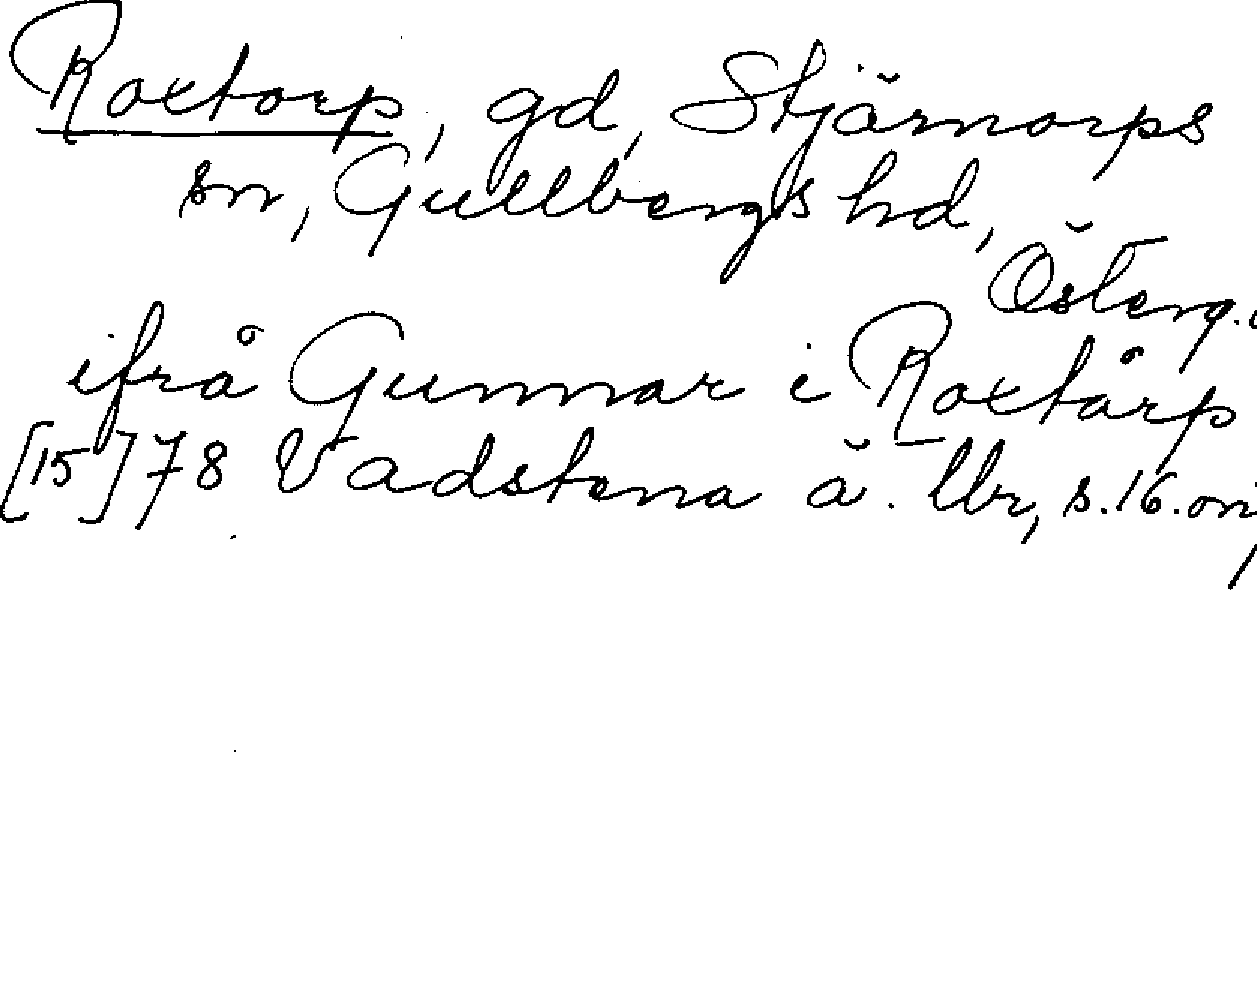 Roxtorp, gd, Stjärnorps
sn, Gullbergs hd,
Österg.
ifrå Gunnar i Roxtårp
[15]78 Vadstena ä. lbr, s. 16. ori